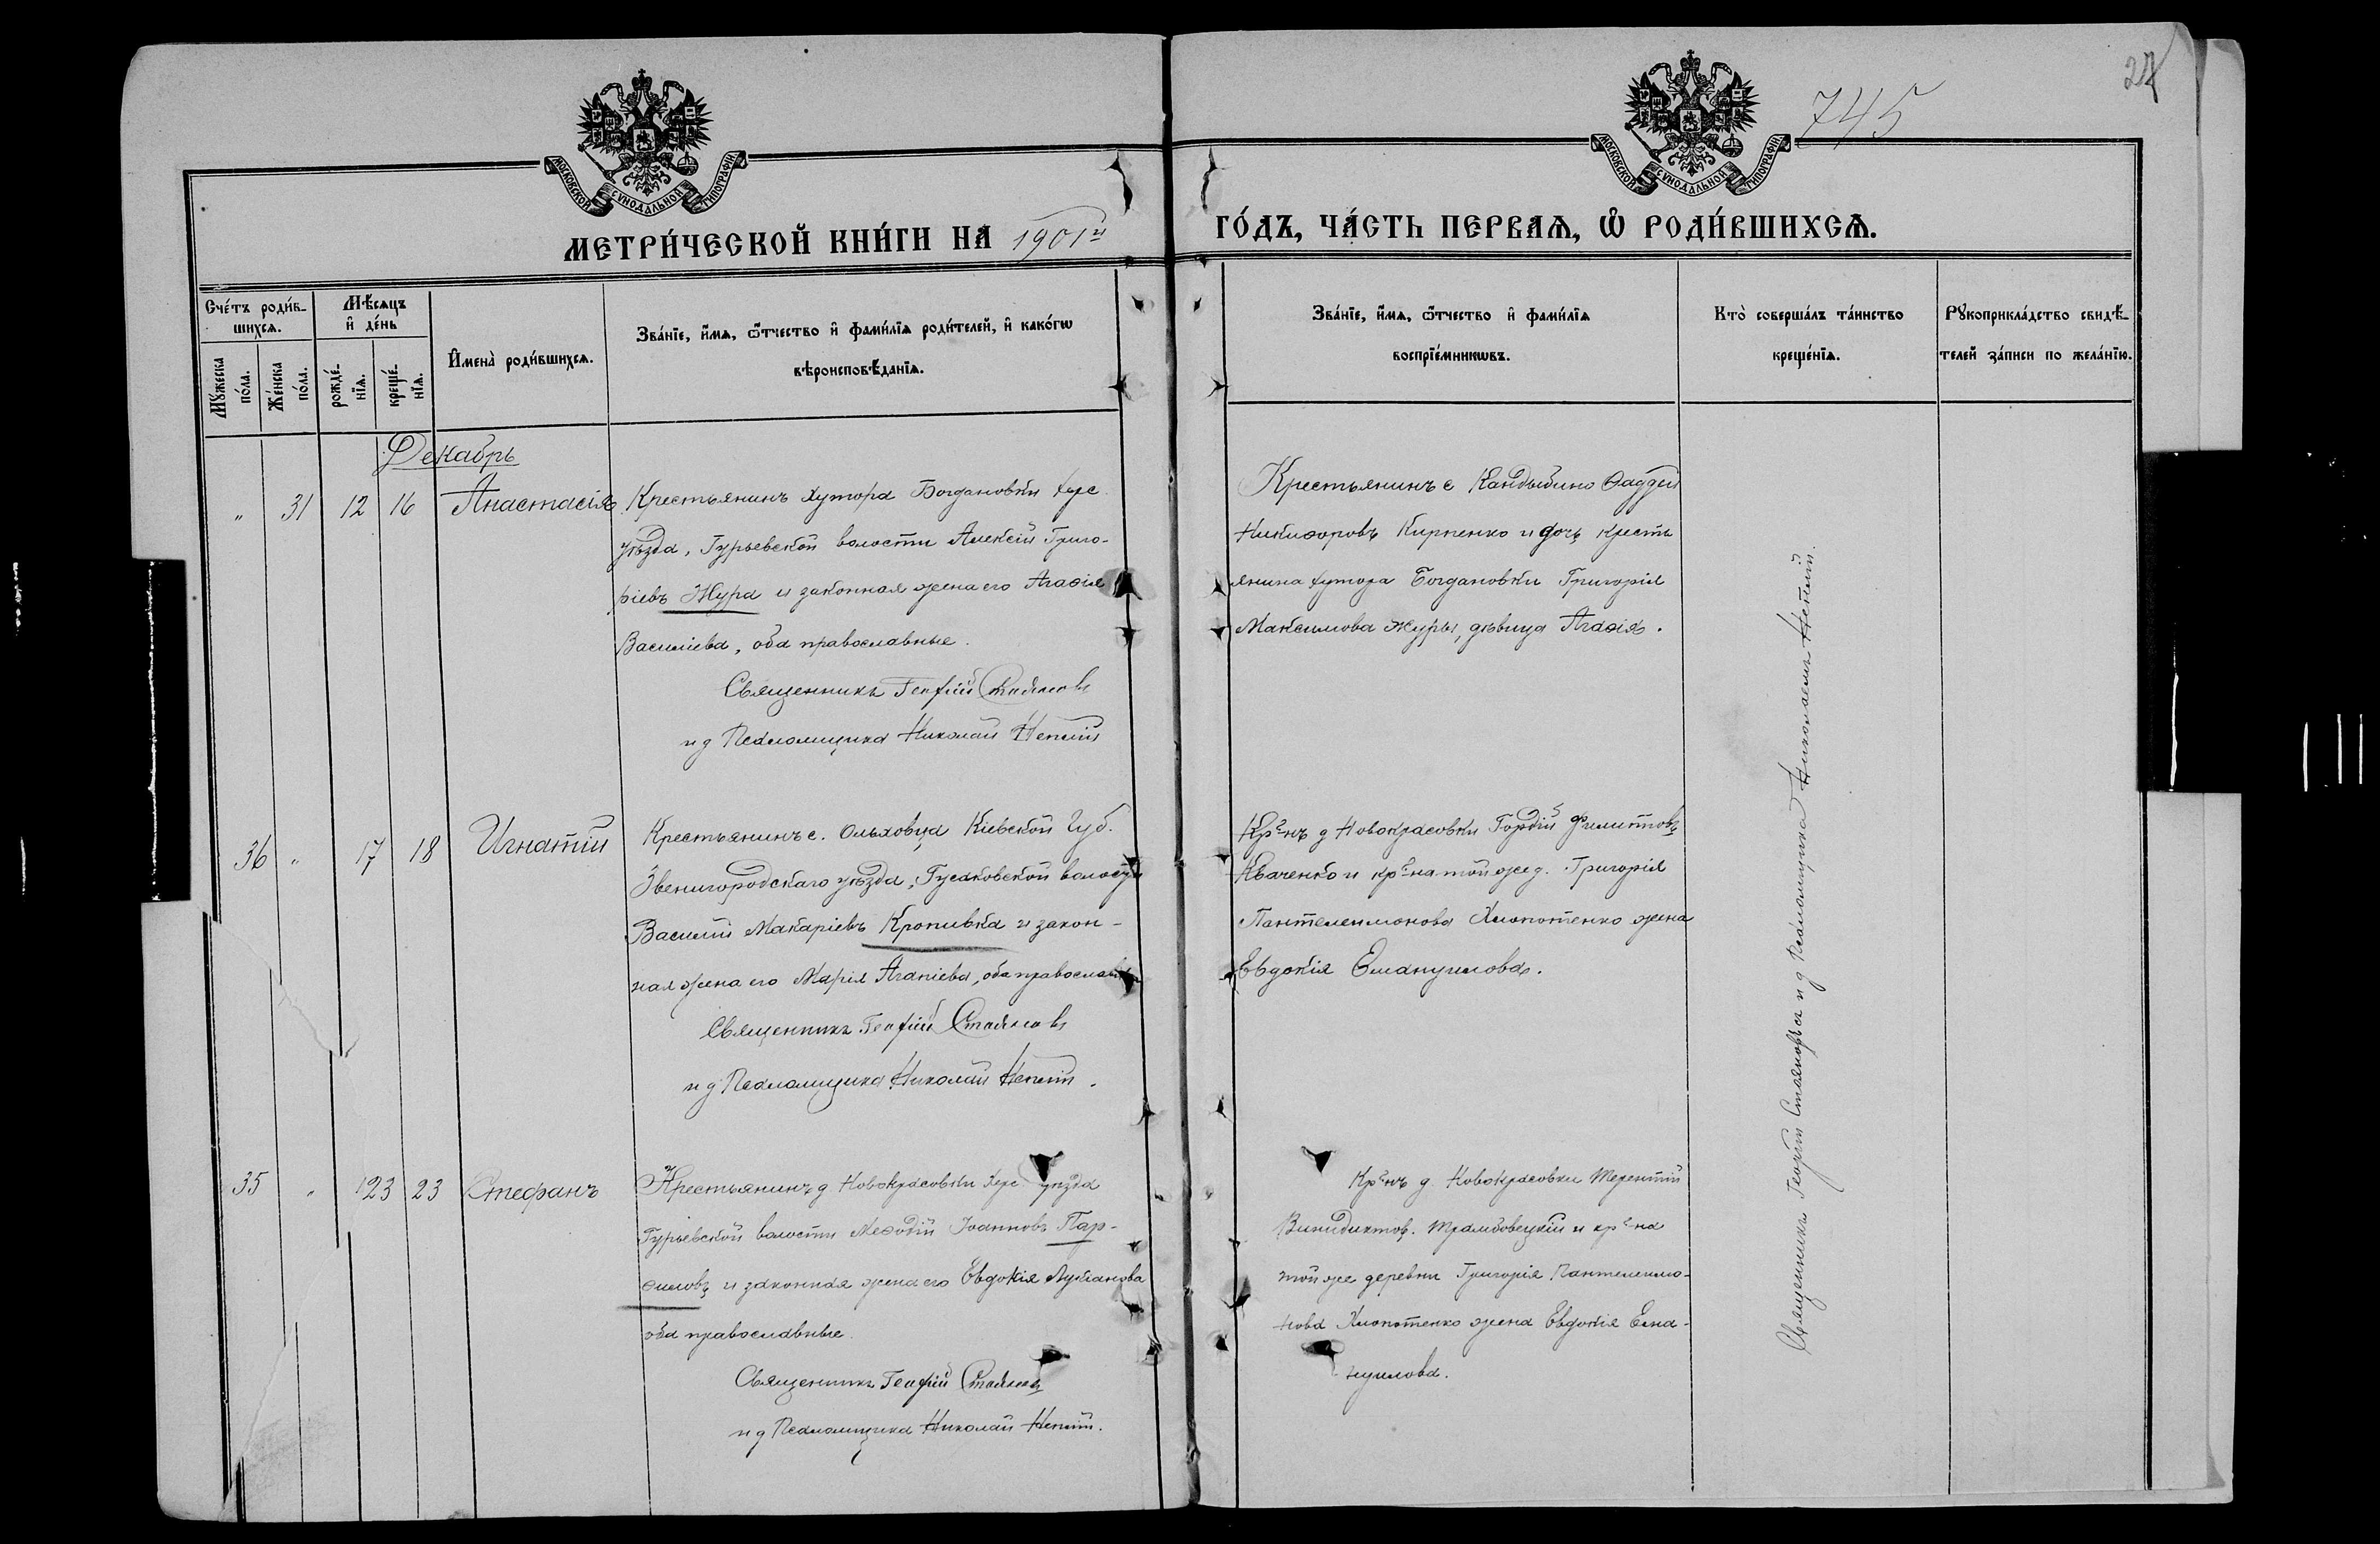 745
24
МОСКОВСКОЙ СѴНОДАЛЬНОЙ ТИПОГРАФІИ
МОСКОВСКОЙ СѴНОДАЛЬНОЙ ТИПОГРАФІИ
МЕТРИ́ЧЕСКОЙ КНИ́ГИ НА 1901й ГО́ДЪ, ЧА́СТЬ ПЕРВАѦ, Ѡ҆ РОДИ́ВШИХСѦ.
Сче́тъ роди́в-
шихсѧ.
Мꙋ́жеска
по́ла.
Же́нска
по́ла.
Мѣ́сѧцъ
и҆ де́нь
рожде́-
нїѧ.
креще́-
нїѧ.
И҆мена̀ роди́вшихсѧ.
Зва́нїе, и҆́мѧ, ѻ҆́тчество и҆ фами́лїѧ роди́телей, и҆ како́гѡ
вѣроисповѣ́данїѧ.
Зва́нїе, и҆́мѧ, ѻ҆́тчество и҆ фами́лїѧ
воспрїе́мникѡвъ.
Кто̀ соверша́лъ та́инство
креще́нїѧ.
Рꙋкоприкла́дство свидѣ́-
телей за́писи по жела́нїю.
Декабрь
" 31 12 16 Анастасія
Крестьянинъ хутора Богдановки Херс.
уѣзда, Гурьевской волости Алексій Григо-
ріевъ Жура и законная жена его Агаѳія
Василіева, оба православные.
Священникъ Георгій Стояновъ
и д Псаломщика Николай
Крестьянинъ с Кандыбино Ѳаддей
Никифоровъ Кирпенко и дочь кресть
янина хутора Богдановки Григорія
Максимова Журы, дѣвица Агаѳія.
36 " 17 18 Игнатій
Крестьянинъ с. Ольховца Кіевской Губ.
Звенигородскаго уѣзда, Гусаковской волости
Василій Макаріевъ Кропивка и закон-
ная жена его Марія Агапіева, оба православн
Священникъ Георгій Стояновъ
и д Псаломщика Николай
Кр-нъ д Новокрасовки Гордій Филиповъ
Кваченко и кр-на той же д. Григорія
Пантелеимонова Хлопотенко жена
Евдокія Емануилова.
35 " 23 23 Стефанъ
Крестьянинъ д Новокрасовки Херс. уѣзда
Гурьевской волости Меѳодій Іоанновъ Пар-
ѳиловъ и законная жена его Евдокія Лукіанова
оба православные.
Священникъ Георгій Стояновъ
и д Псаломщика Николай
Кр-нъ д. Новокрасовки Терентій
Винидиктов. Трамбовецкій и кр-на
той же деревни Григорія Пантелеимо-
нова Хлопотенко жена Евдокія Ема-
нуилова.
Священникъ Георгій Стояновъ съ и д Псаломщика Николаемъ